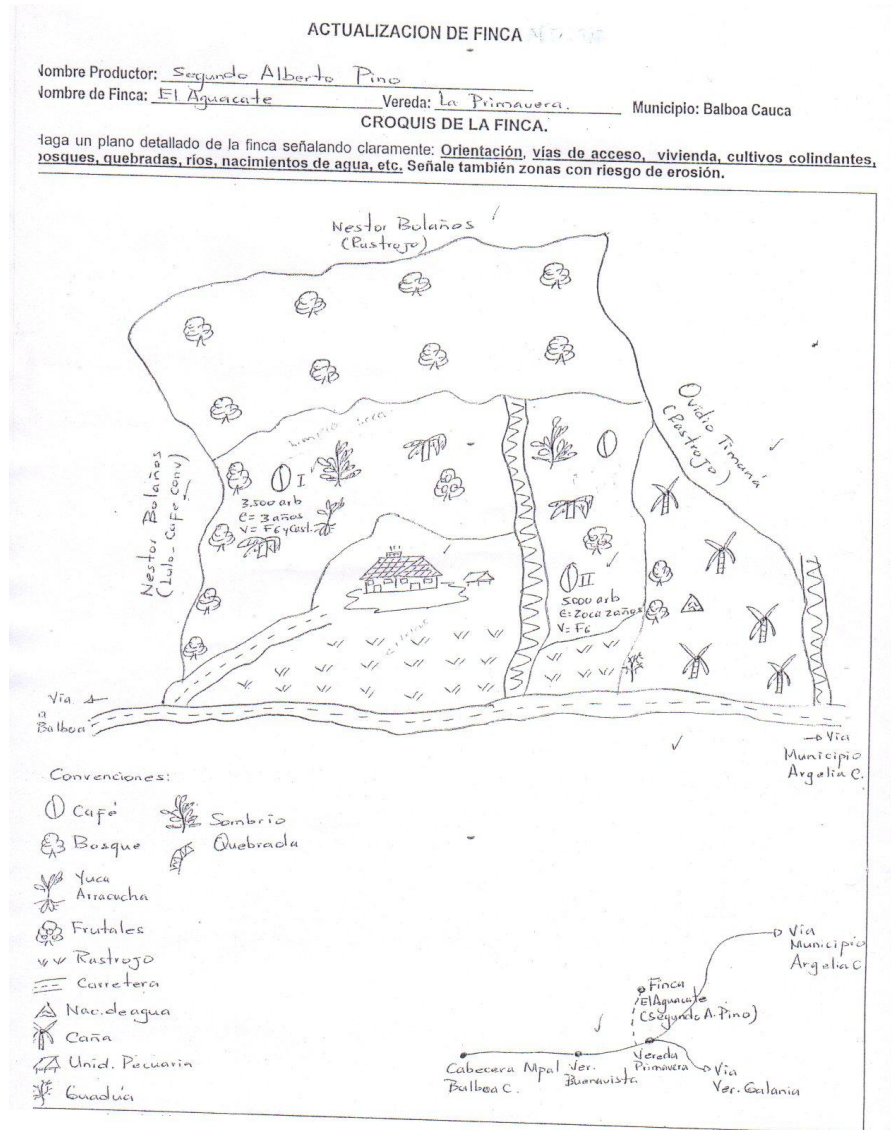 ACTUALIZACION DE FINCA
Nombre Productor: Segundo Alberto Pino
Nombre de Finca: El Aguacate Vereda: La Primavera. Municipio: Balboa Cauca
CROQUIS DE LA FINCA.
Haga un plano detallado de la finca señalando claramente: Orientación, vías de acceso, vivienda, cultivos colindantes,
bosques, quebradas, ríos, nacimientos de agua, etc. Señale también zonas con riesgo de erosión.
Nestor Bolaños
(Rastrojo)
Ovidio Timaná
(Rastrojo)
Nestor Bolaños
(Lulo-Cafe conv)
I
3.500 arb
E= 3 años
V= F6 y Cast.
II
5.000 arb
E= Zoca 2 años
V= F6
Vía
a
Balboa
Vía
Municipio
Argelia C.
Convenciones:
Café
Sombrio
Bosque
Quebrada
Yuca
Arracacha
Frutales
Rastrojo
Carretera
Nac. de agua
Caña
Unid. Pecuaria
Guadúa
Vía
Municipio
Argelia C
Finca
El Aguacate
(Segundo A. Pino)
Cabecera Mpal
Balboa C.
Ver.
Buenavista
Vereda
Primavera
Vía
Ver. Galania